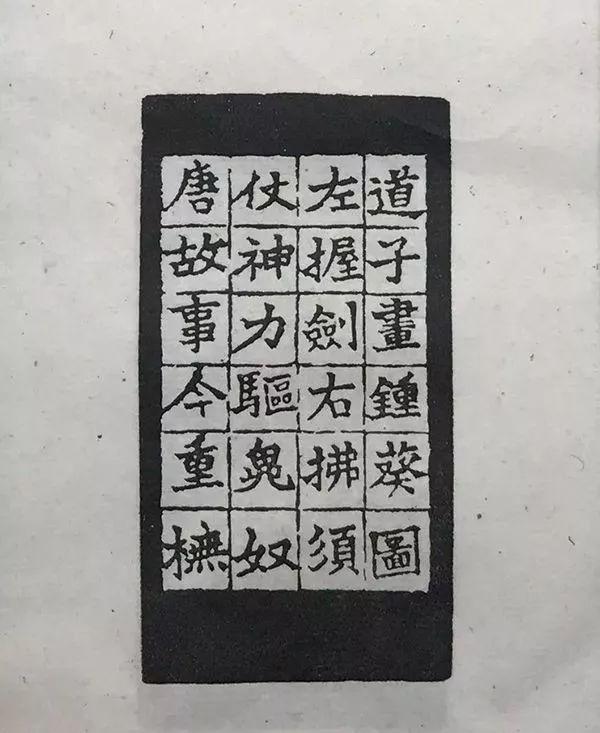 道子畫鍾葵圖
左握劍右拂須
仗神力驅鬼奴
唐故事今重橅